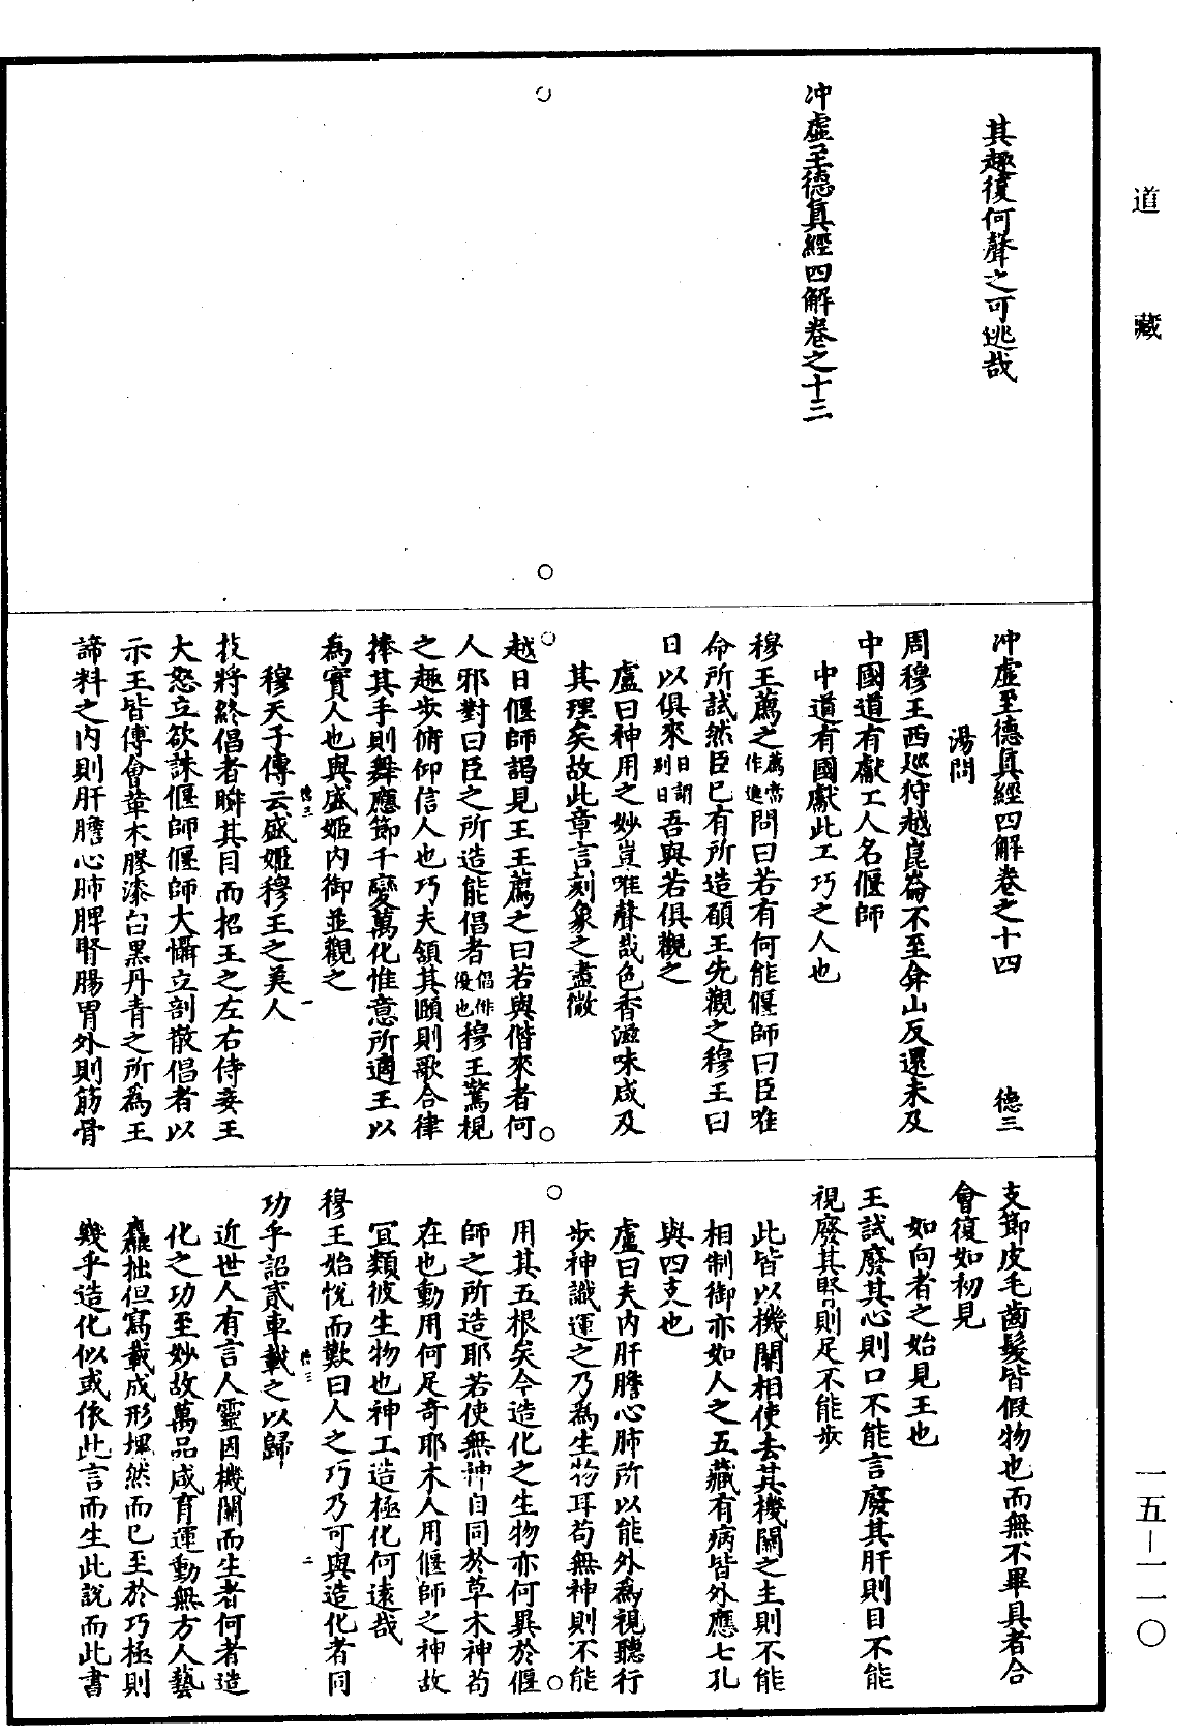 道藏
其趣復何聲之可逃哉
冲虛至德眞經四解卷之十三
冲虛至德眞經四解卷之十四 德三
湯問
周穆王西巡狩越崑崙不至弇山反還未及
中國道有獻工人名偃師
中道有國獻此工巧之人也
穆王薦之薦當作進問曰若有何能偃師曰臣唯
命所試然臣已有所造願王先觀之穆王曰
日以俱來日謂別日吾與若俱觀之
盧曰神用之妙豈唯聲哉色香滋味咸及
其理矣故此章言刻象之盡微
越日偃師謁見王王薦之曰若與偕來者何
人邪對曰臣之所造能倡者倡俳優也穆王驚視
之趣步俯仰信人也巧夫顉其頤則歌合律
捧其手則舞應節千變萬化惟意所適王以
爲實人也與盛姬內御並觀之
穆天子傳云盛姬穆王之美人
德三 一
技將終倡者瞬其目而招王之左右侍妾王
大怒立欲誅偃師偃師大懾立剖散倡者以
示王皆傅會草木膠漆白黑丹青之所爲王
諦料之內則肝膽心肺脾腎腸胃外則筋骨
支節皮毛齒髮皆假物也而無不畢具者合
會復如初見
如向者之始見王也
王試廢其心則口不能言廢其肝則目不能
視廢其腎則足不能步
此皆以機關相使去其機關之主則不能
相制御亦如人之五藏有病皆外應七孔
與四支也
盧曰夫內肝膽心肺所以能外爲視聽行
步神識運之乃爲生物耳苟無神則不能
用其五根矣今造化之生物亦何異於偃
師之所造耶若使無神自同於草木神苟
在也動用何足奇耶木人用偃師之神故
宜類彼生物也神工造極化何遠哉
穆王始悅而歎曰人之巧乃可與造化者同
功乎詔貳車載之以歸
德三 二
近世人有言人靈因機關而生者何者造
化之功至妙故萬品咸育運動無方人藝
麤拙但寫載成形塊然而已至於巧極則
幾乎造化似或依此言而生此說而此書
一五—一一〇